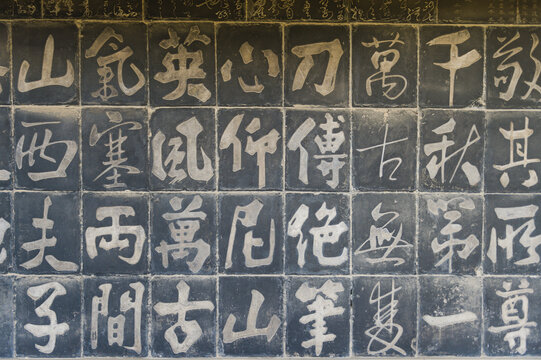 敬其所尊
千秋第一
萬古無雙
刀傳絕筆
心仰尼山
英風萬古
氣塞兩間
山西夫子